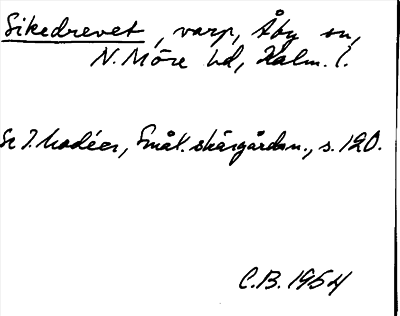 Sikedrevet, varp, Åby sn,
N. Möre hd, Kalm. l.
Se I. Modéer, Smål. skärgårdsn., s. 120.
C.B. 1954